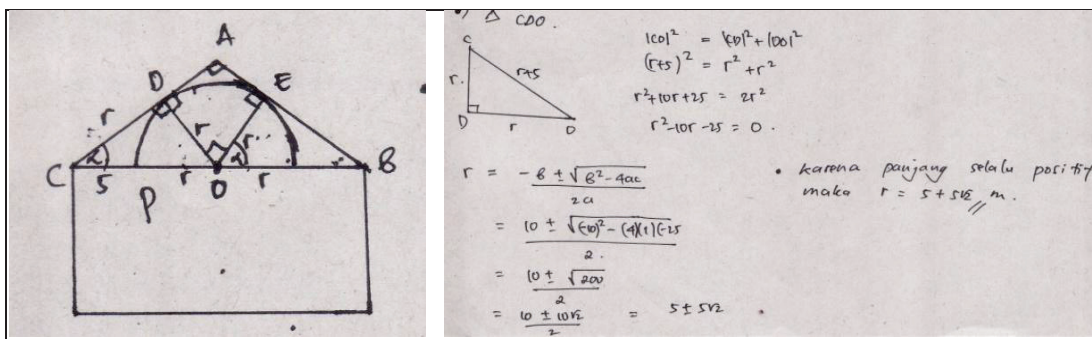 A
D E
r r r
C α 5 r O α r B
P
△ CDO.
C
r. r+5
D r O
|CO|² = |CD|² + |DO|²
(r+5)² = r² + r²
r²+10r+25 = 2r²
r²-10r-25 = 0.
r = -B ± √B²-4ac
2a
= 10 ± √(-10)² - (4)(1)(-25
2.
= 10 ± √200
2
= 10 ± 10√2 = 5 ± 5√2
2
• karena panjang selalu positif
maka r = 5 + 5√2 // m.